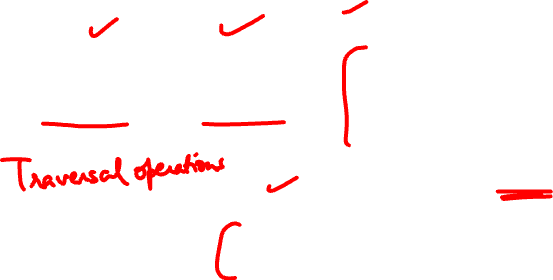 Traversal operations